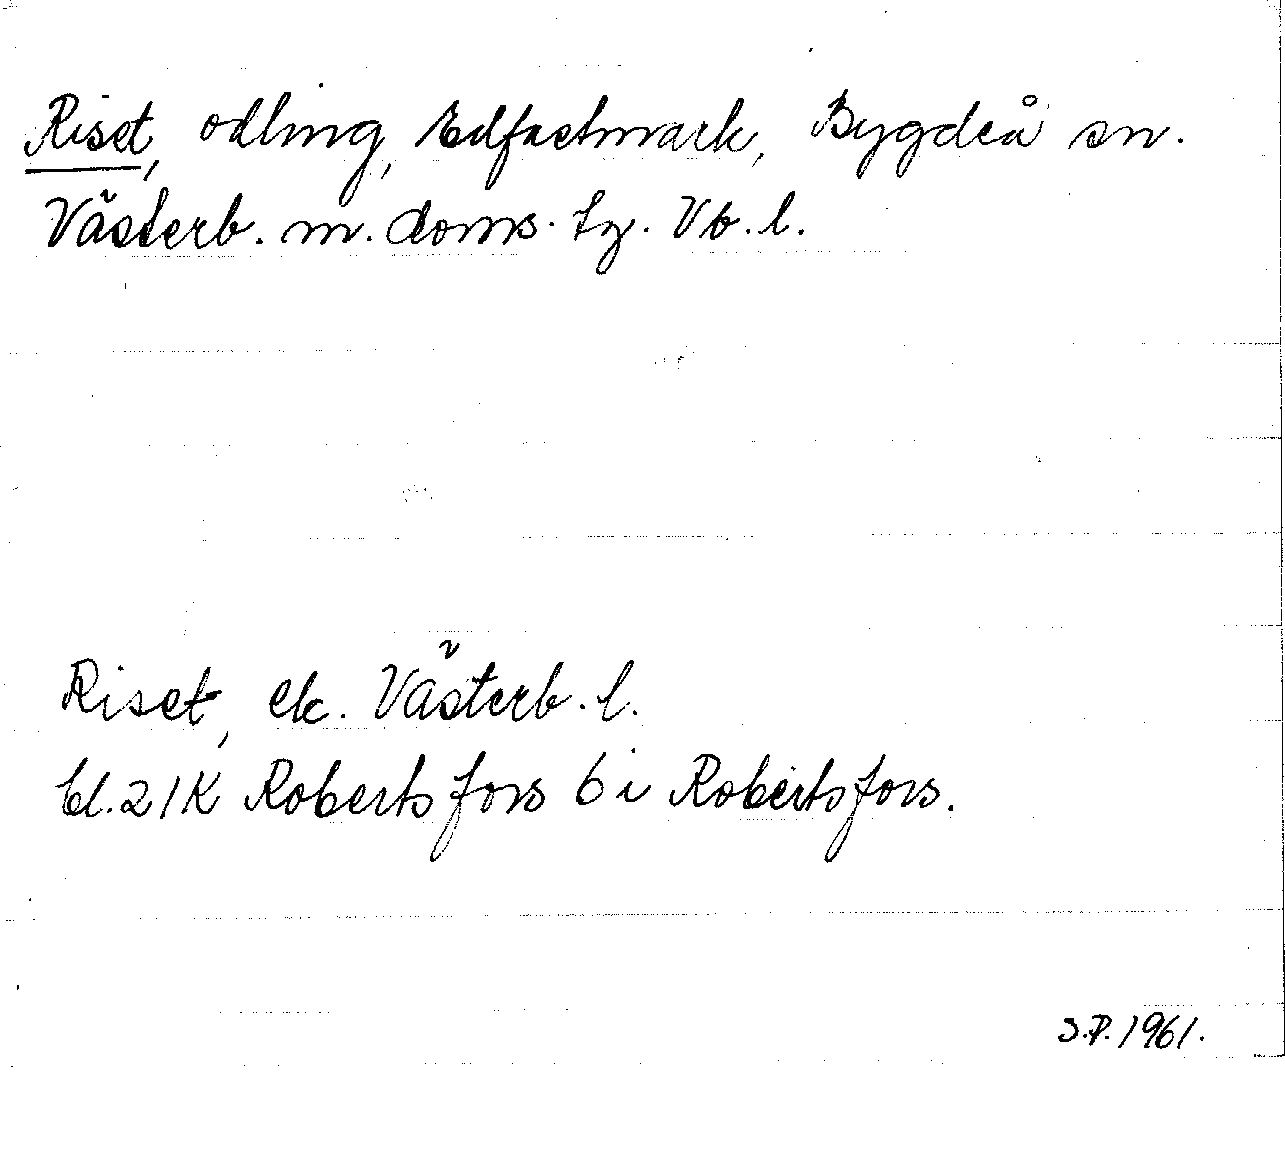 Riset, odling, Edfastmark, Bygdeå sn.
Västerb. m. doms. tg. Vb. l.
Riset, ek. Västerb. l.
bl. 21K Robertsfors 6 i Robertsfors.
S.P. 1961.